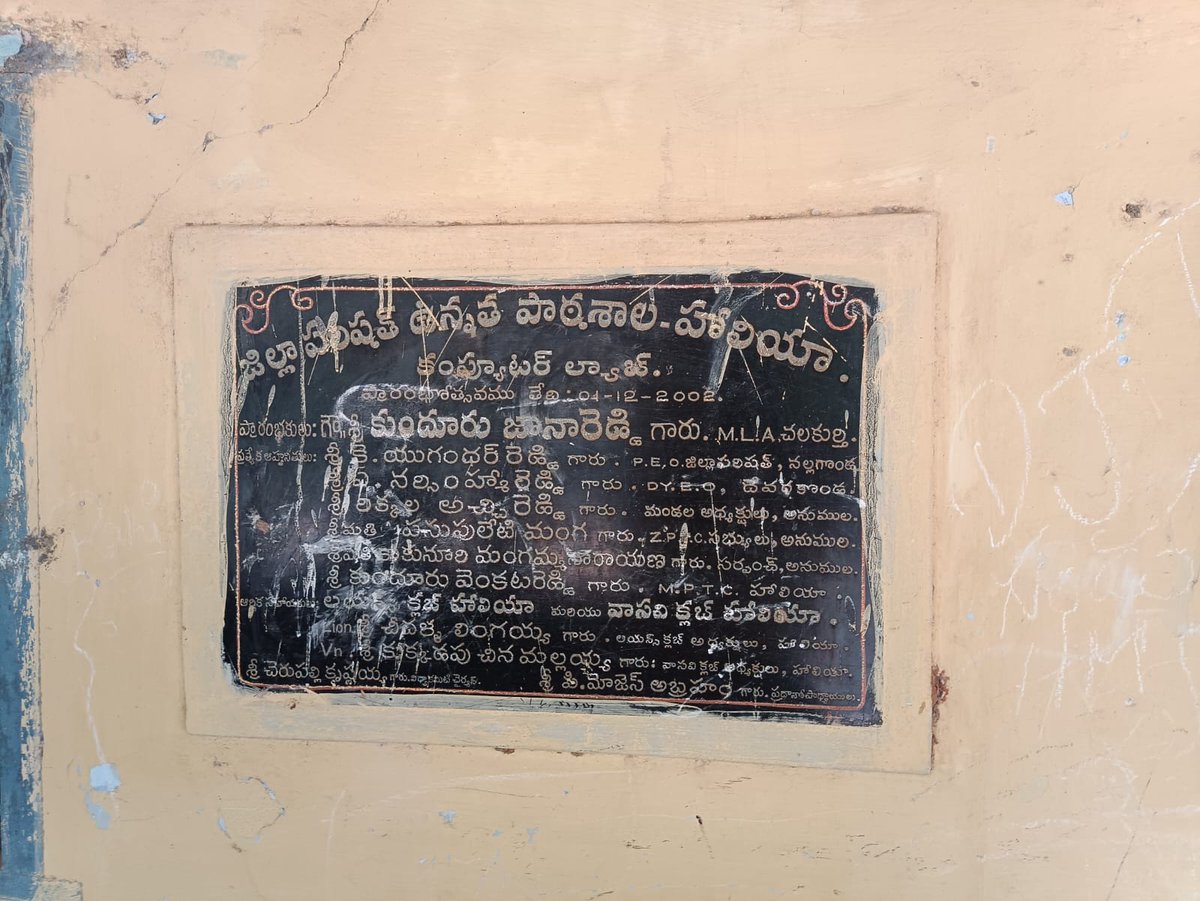 జిల్లా పరిషత్ ఉన్నత పాఠశాల-హాలియా.
కంప్యూటర్ ల్యాబ్.
ప్రారంభోత్సవము తేది:01-12-2002.
ప్రారంభకులు: గౌ॥శ్రీ కుందూరు జానారెడ్డి గారు. M.L.A,చలకుర్తి.
ప్రత్యేక ఆహ్వానితులు: శ్రీ యుగంధర్ రెడ్డి గారు. P.E.O.జిల్లాపరిషత్, నల్లగొండ.
నర్సింహ్మారెడ్డి గారు. DY.E.O, దేవరకొండ.
అచ్చిరెడ్డి గారు. మండల అధ్యక్షులు, అనుముల.
శ్రీమతి పసుపులేటి మంగ గారు. Z.P.T.C.సభ్యులు, అనుముల.
శ్రీమతి మంగమ్మనారాయణ గారు. సర్పంచ్, అనుముల.
కుందూరు వెంకటరెడ్డి గారు. M.P.T.C. హాలియా.
ఆర్థిక సహాయకులు: లయన్స్ క్లబ్ హాలియా మరియు వాసవి క్లబ్ హాలియా.
Lion. శ్రీ లింగయ్య గారు. లయన్స్ క్లబ్ అధ్యక్షులు, హాలియా.
Vn. శ్రీ చిన మల్లయ్య గారు: వాసవి క్లబ్ అధ్యక్షులు, హాలియా.
శ్రీ చెరుపల్లి క్రుష్ణయ్య గారు. విద్యాకమిటి చైర్మన్. శ్రీ పి.మోజెస్ అబ్రహాం గారు. ప్రధానోపాధ్యాయులు.